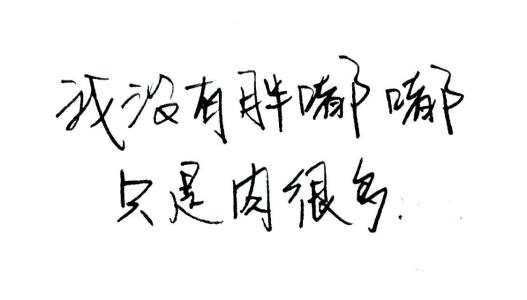 我没有胖嘟嘟
只是肉很多.